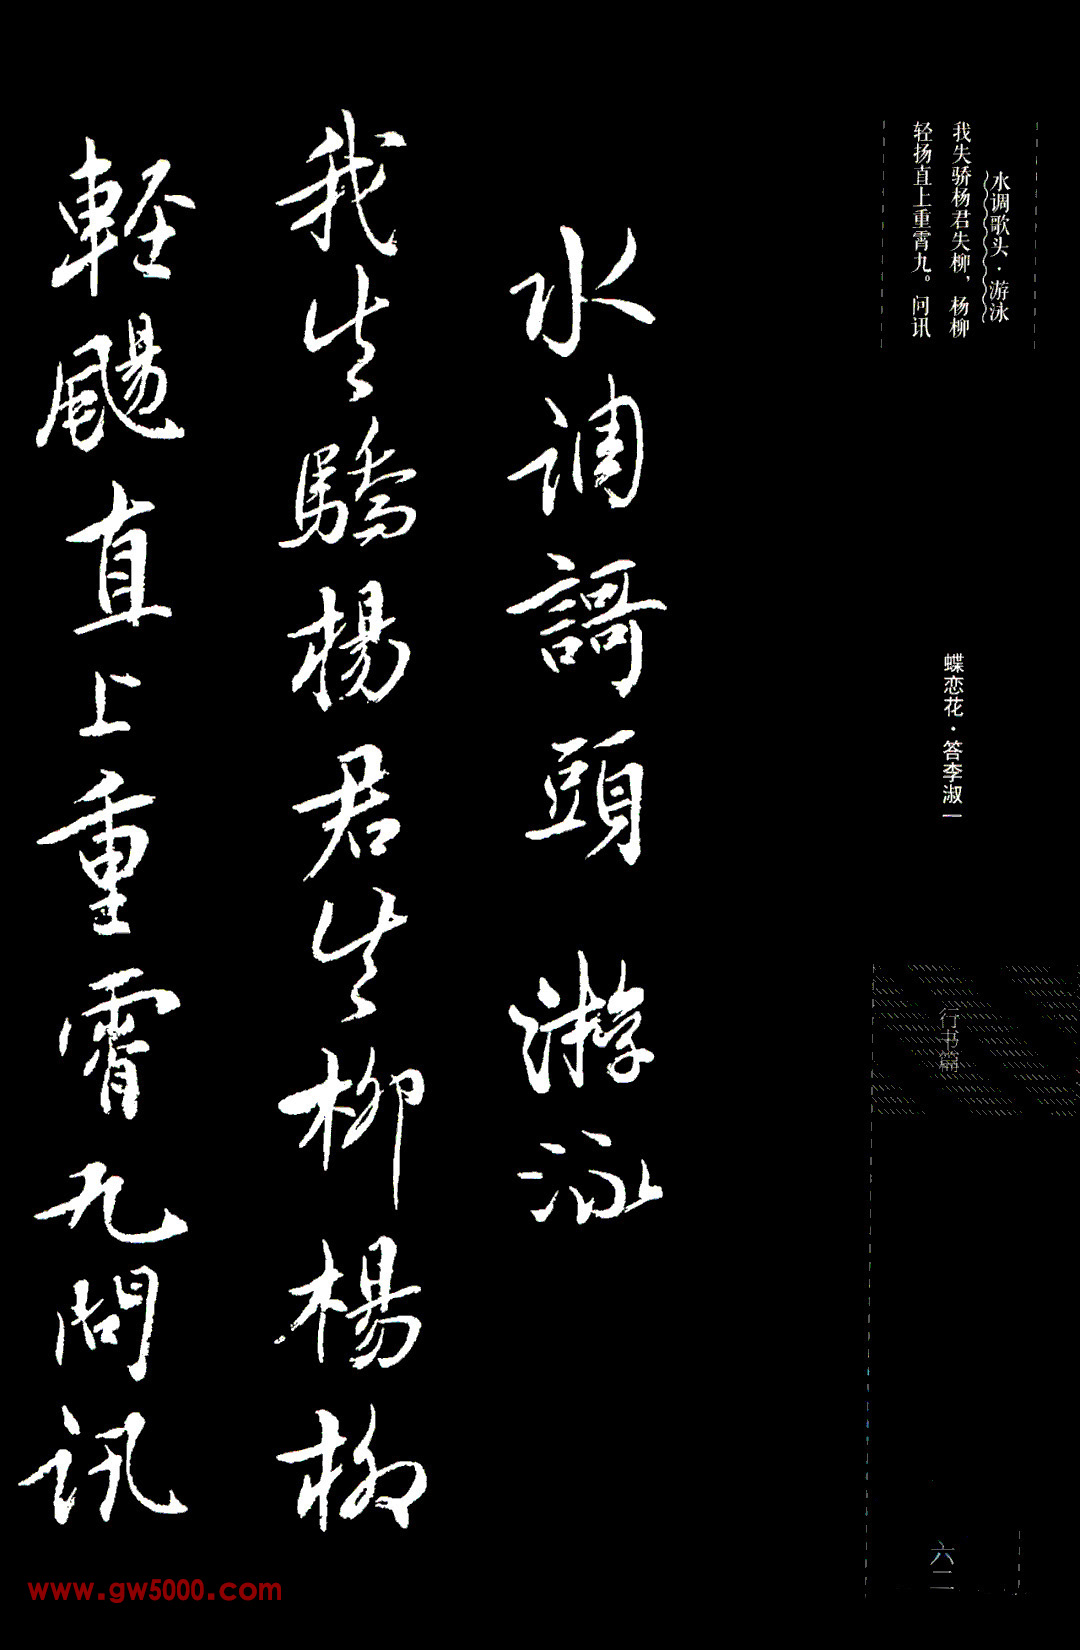 水调歌头·游泳
我失骄杨君失柳，杨柳
轻扬直上重霄九。问讯
蝶恋花·答李淑一
行书篇
六二
水调謌頭 游泳
我失驕楊君失柳楊柳
輕颺直上重霄九問訊
www.gw5000.com